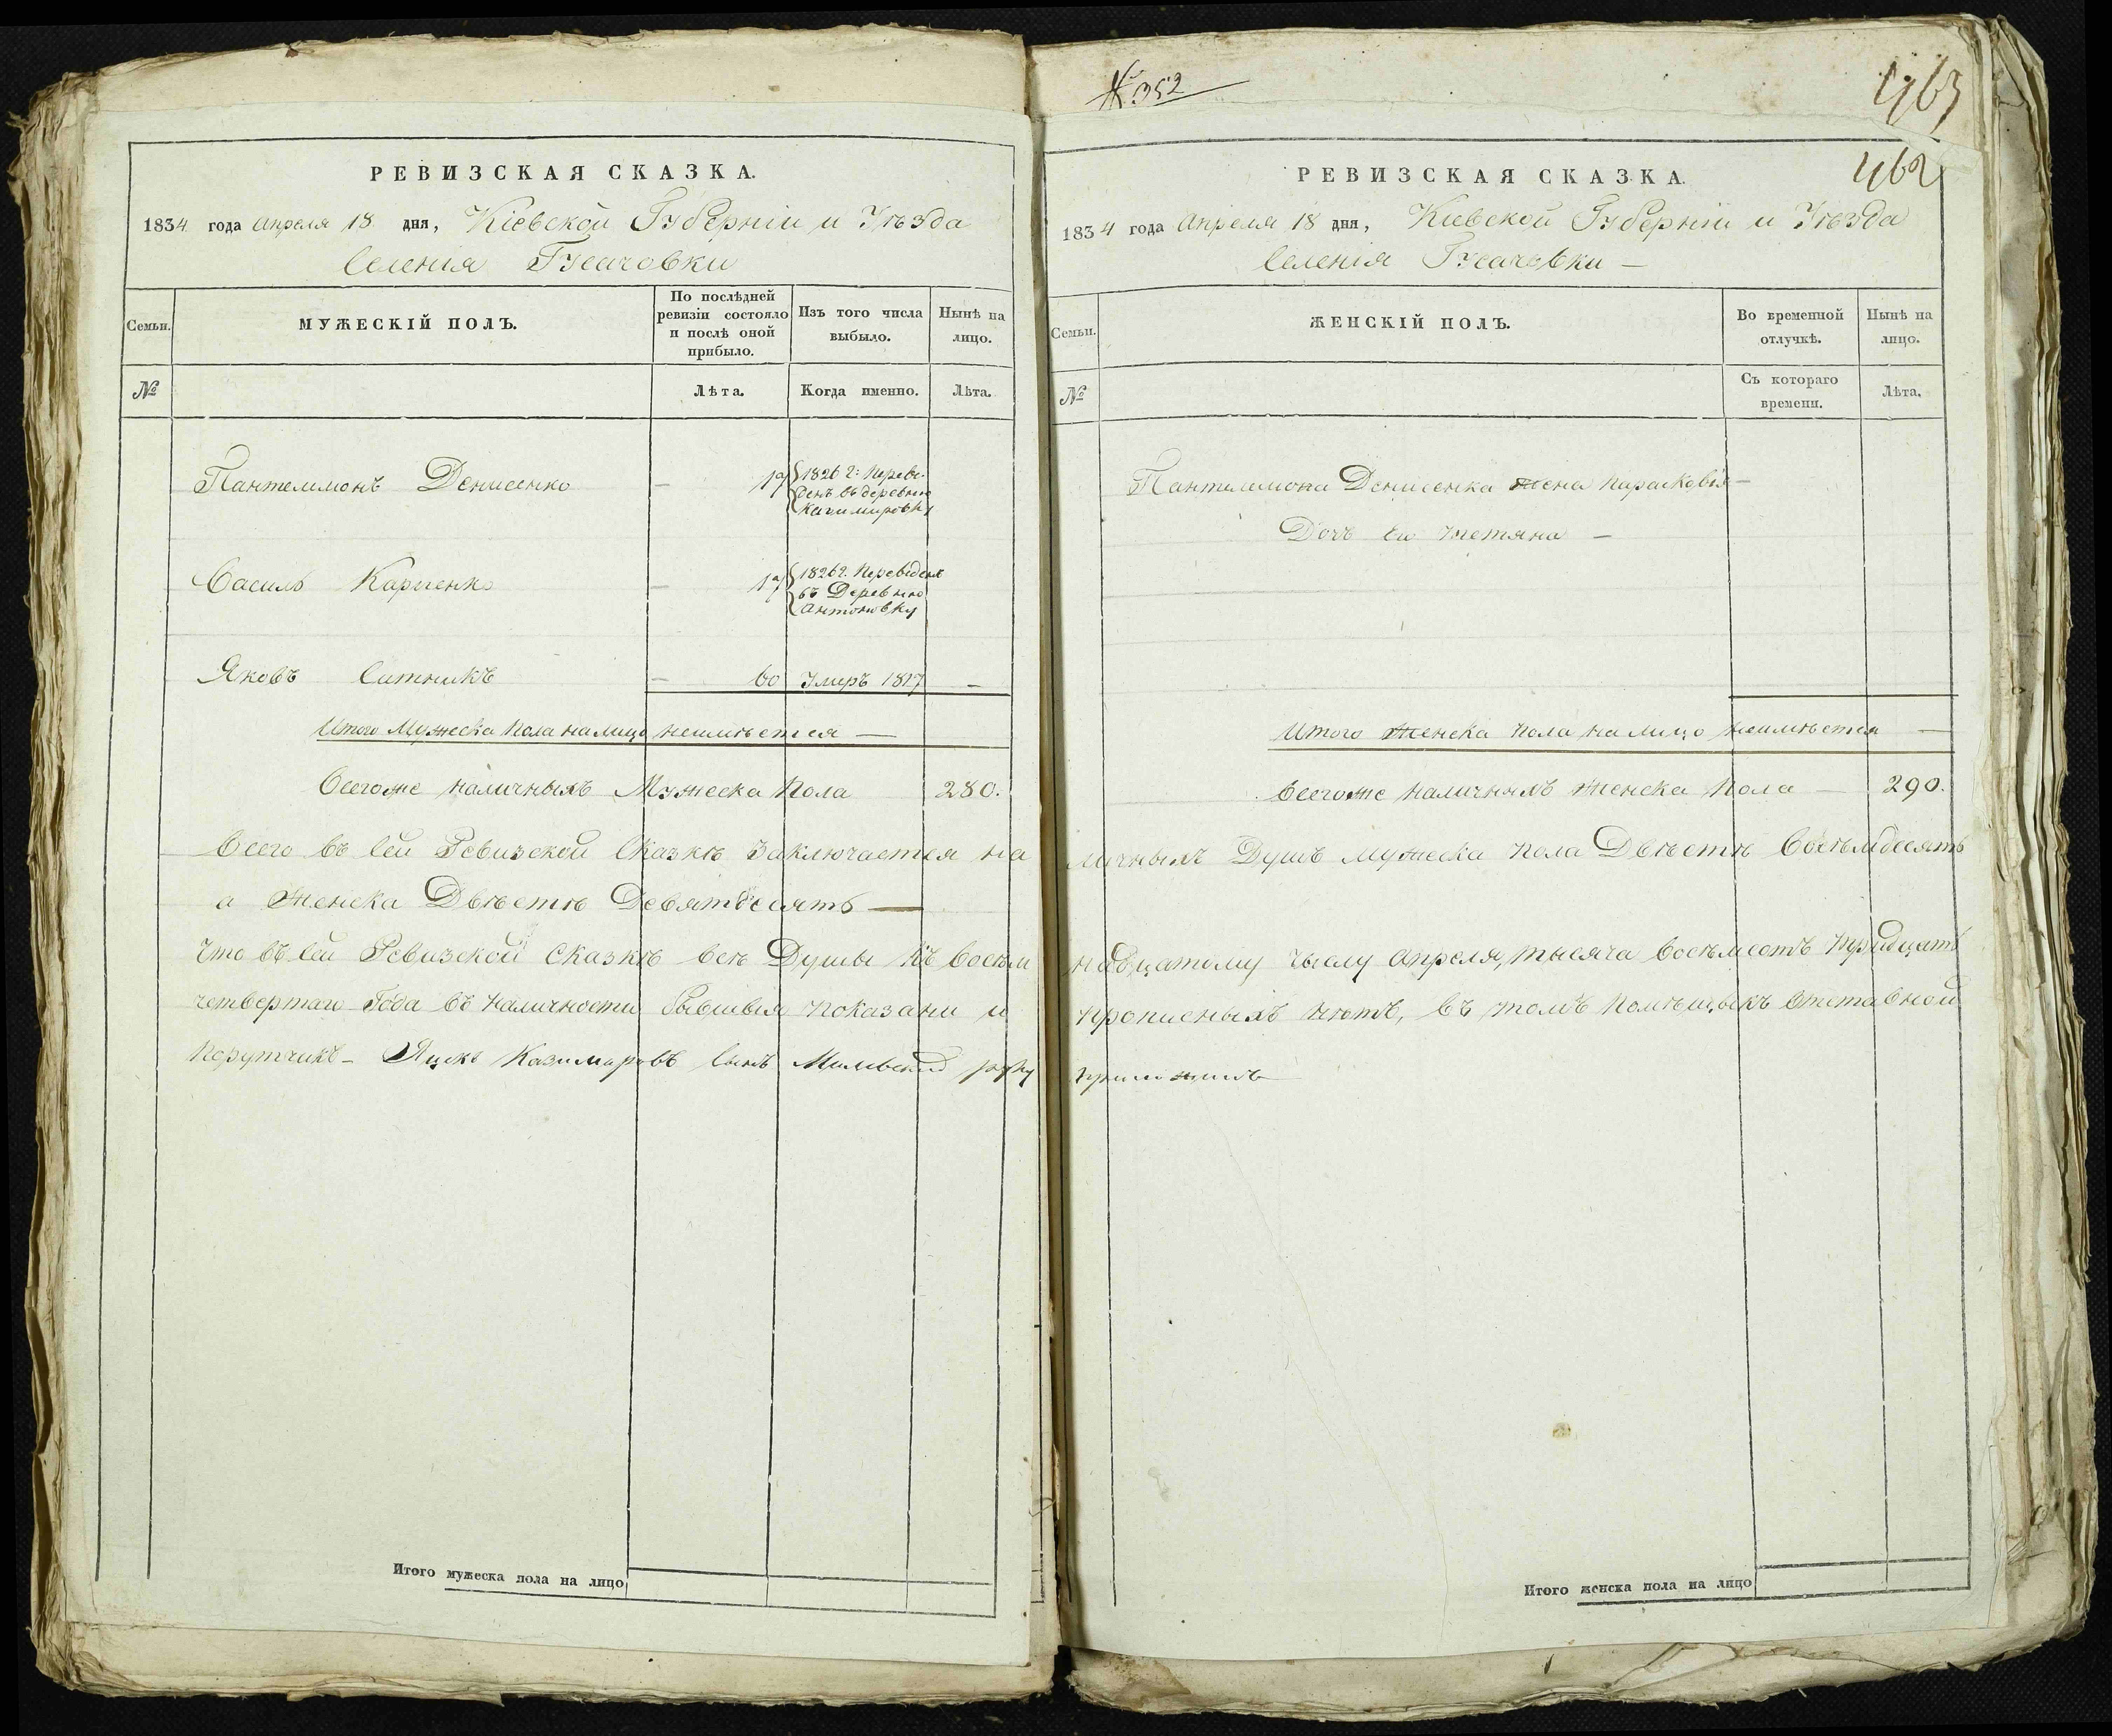 РЕВИЗСКАЯ СКАЗКА.
1834 года апреля 18 дня, Кіевской Губерніи и Уѣзда
Селенія Гусачовки
Семьи.
МУЖЕСКІЙ ПОЛЪ.
По послѣдней ревизіи состояло и послѣ оной прибыло.
Изъ того числа выбыло.
Нынѣ на лицо.
№
Лѣта.
Когда именно.
Лѣта.
Пантелимонъ Денисенко – 19 1826 г: переве-
денъ въ деревню
Казимировку
Василь Карпенко – 17 1826 г. переведенъ
въ Деревню
Антоновку
Яковъ Сатникъ – 60 Умеръ 1817 –
Итого Мужеска пола на лицо неимѣется —
Всегоже наличныхъ Мужеска Пола 280.
Всего въ сей Ревизской Сказкѣ Заключается на
а Женска Двѣстѣ Девятдесятъ —
Что въ сей Ревизской Сказкѣ всѣ Душы къ восѣм
четвертаго Года въ наличности бывшыя показани и
Порутчикъ – Яцекъ Казимировъ сынъ руку
№ 352
463
462
РЕВИЗСКАЯ СКАЗКА.
1834 года Апреля 18 дня, Кіевской Губерніи и Уѣзда
Селенія Гусачовки —
Семьи.
ЖЕНСКІЙ ПОЛЪ.
Во временной отлучкѣ.
Нынѣ на лицо.
№
Съ котораго времени.
Лѣта.
Пантелимона Денисенка жена Парасковія –
Дочъ Ею Тетяна –
Итого Женска пола на лицо неимѣется —
Всегоже наличныхъ Женска Пола — 290.
личныхъ Душъ мужеска пола Двѣстѣ Восѣмдесятъ
надцатому числу апреля, тысяча восѣмсотъ тридцатъ
прописныхъ нѣтъ, въ томъ Помѣщыкъ Отставной
приложилъ
Итого мужеска пола на лицо
Итого женска пола на лицо